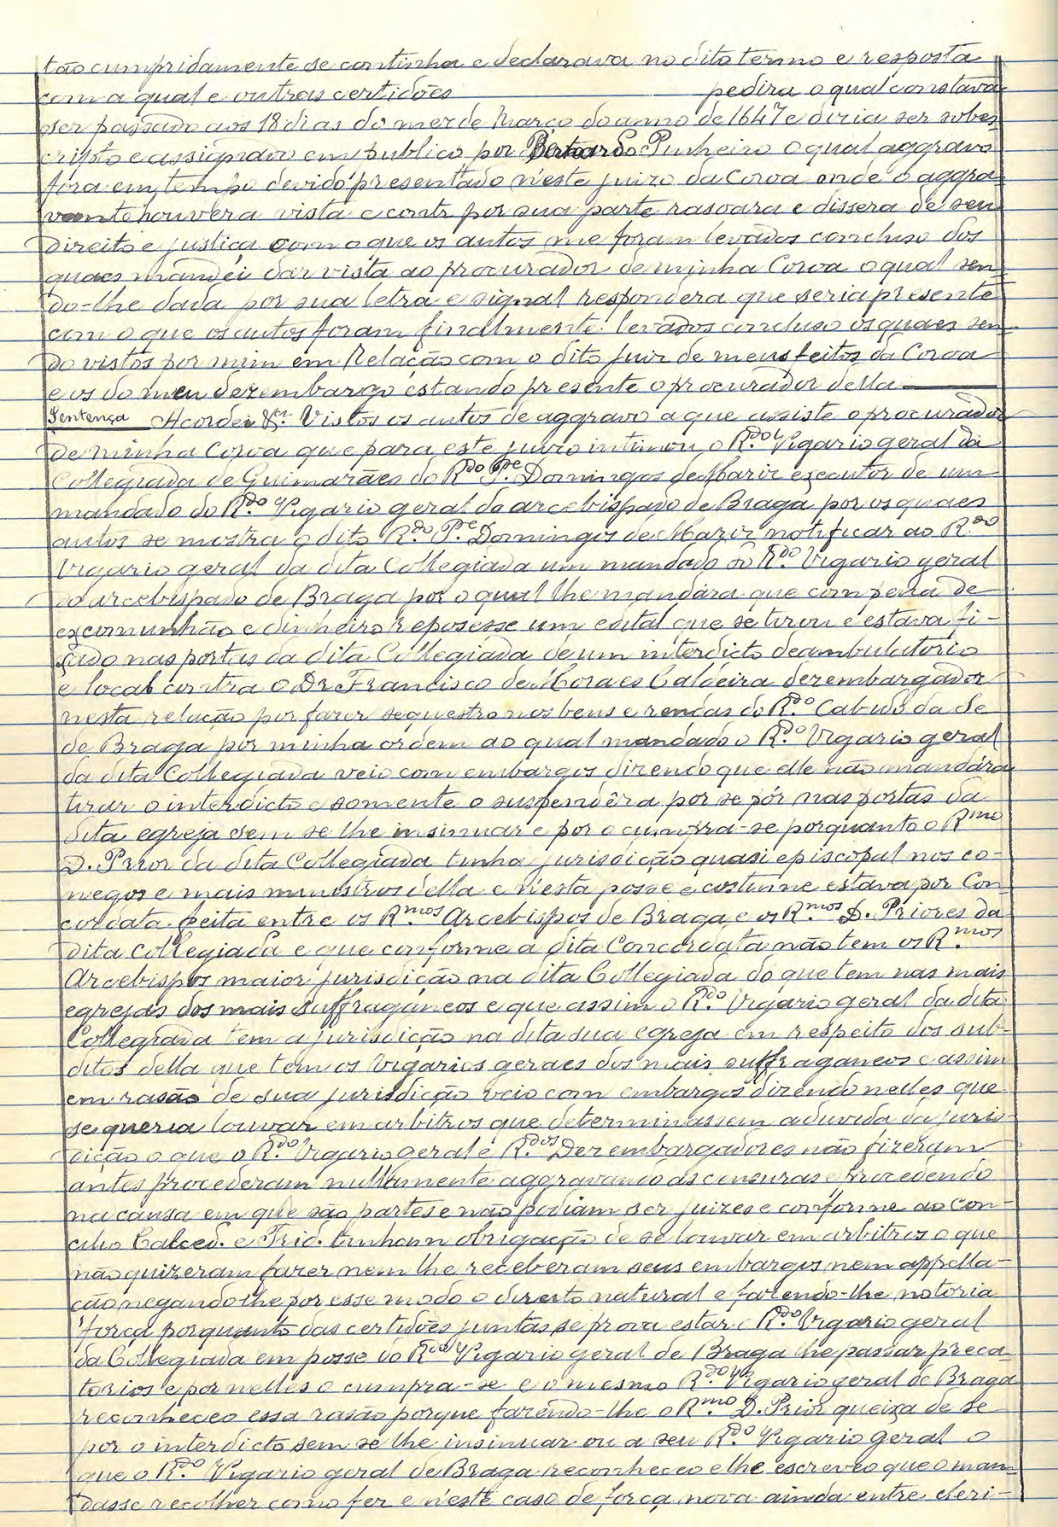 tão cumpridamente se continha e declarava no dito termo e resposta
com a qual e outras certidões pedira o qual constava
ser passado aos 18 dias do mez de Março do anno de 1647 e dizia ser sobes-
cripto e assignado em publico por Bernardo Pinheiro o qual aggravo
fôra em tempo devido presentado n'este juizo da Coroa onde o aggra-
vante houvera vista e contr por sua parte rasoara e dissera de seu
direito e justiça com o que os autos me foram levados concluso dos
quaes mandei dar vista ao procurador de minha Coroa o qual sen-
do-lhe dada por sua letra e signal respondera que seria presente
com o que os autos foram finalmente levados concluso os quaes sen-
do vistos por mim em Relação com o dito juiz de meus feitos da Coroa
e os do meu dezembargo estando presente o procurador della
Sentença Acordei &ª. Vistos os autos de aggravo a que assiste o procurador
de minha Coroa que para este juizo intimou o R.do Vigario geral da
Collegiada de Guimarães do R.do P.e Domingos de Mariz executor de um
mandado do R.do Vigario geral do arcebispado de Braga por os quaes
autos se mostra o dito R.do P.e Domingos de Mariz notificar ao R.do
Vigario geral da dita Collegiada um mandado do R.do Vigario geral
do arcebispado de Braga por o qual lhe mandára que com pena de
excomunhão e dinheiro reposesse um edital que se tirou e estava fi-
çado nas portas da dita Collegiada de um interdicto deambulatorio
e local contra o Dr. Francisco de Moraes Caldeira dezembargador
nesta relação por fazer sequestro nos bens e rendas do R.do Cabido da Se
de Braga por minha ordem ao qual mandado o R.do Vigario geral
da dita Collegiada veio com embargos dizendo que elle não mandára
tirar o interdicto e somente o suspendêra por se pôr nas portas da
dita egreja sem se lhe insinuar e por o cumpra-se porquanto o R.mo
D. Prior da dita Collegiada tinha jurisdição quasi episcopal nos co-
negos e mais ministros della e n'esta posse e costume estava por Con-
cordata feita entre os R.mos Arcebispos de Braga e os R.mos D. Priores da
dita Collegiada e que conforme a dita Concordata não tem os R.mos
Arcebispos maior jurisdição na dita Collegiada do que tem nas mais
egrejas dos mais suffragáneos e que assim o R.do Vigario geral da dita
Collegiada tem a jurisdição na dita sua egreja em respeito dos sub-
ditos della que tem os Vigarios geraes dos mais suffraganeos e assim
em rasão de sua jurisdição veio com embargos dizendo nelles que
se queria louvar em arbitros que determinassem a duvida da juris-
dição o que o R.do Vigario geral e R.dos Dezembargadores não fizeram
antes procederam nullamente aggravando as censuras e procedendo
na causa em que são partes e não podiam ser juizes e conforme ao Con-
cilio Calced. e Trid. tinham obrigação de se louvar em arbitros o que
não quizeram fazer nem lhe receberam seus embargos nem appella-
ção negando-lhe por esse modo o direito natural e fazendo-lhe notoria
força porquanto das certidões juntas se prova estar o R.do Vigario geral
da Collegiada em posse do R.do Vigario geral de Braga lhe passar preca-
torios e por nelles o cumpra-se e o mesmo R.do Vigario geral de Braga
reconheceo essa rasão porque fazendo-lhe o R.mo D. Prior queixa de se
por o interdicto sem se lhe insinuar ou a seu R.do Vigario geral o
que o R.do Vigario geral de Braga reconheceo e lhe escreveo que o man-
dasse recolher como fez e n'este caso de força nova ainda entre cleri-